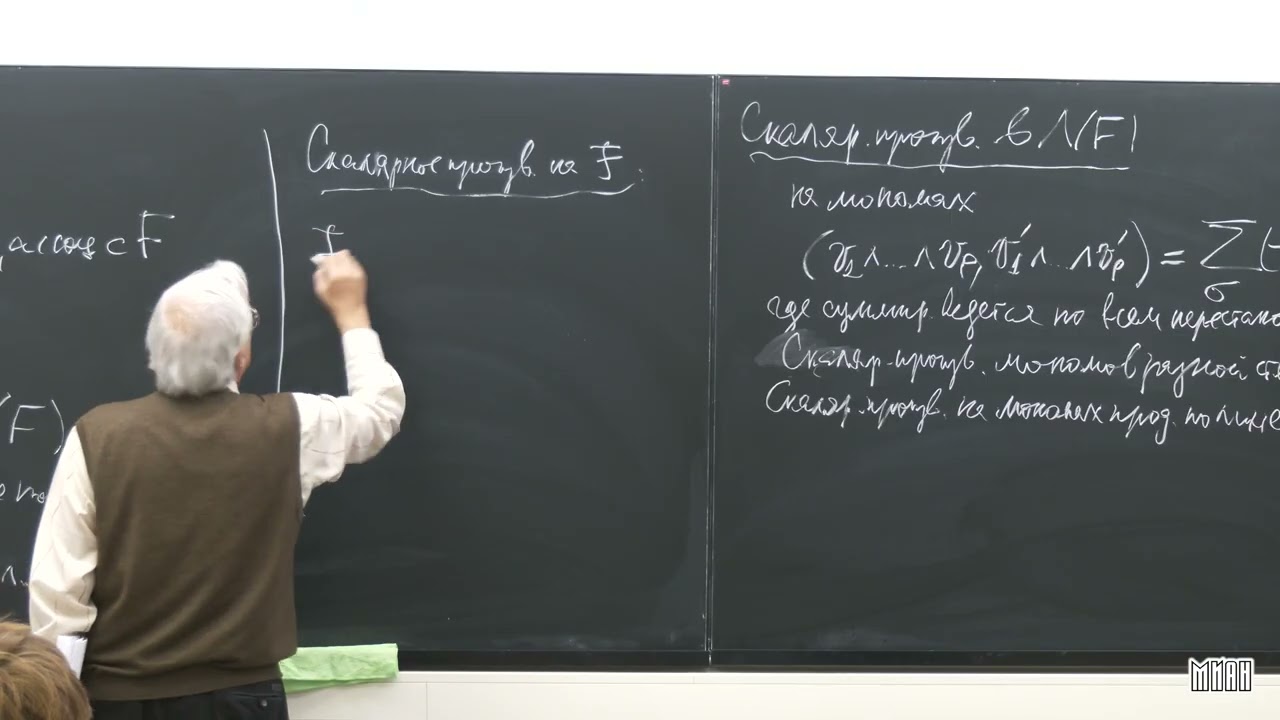 ассоц с F
(F)
Скалярное произв. на F:
F
Скаляр. произв. в Λ(F)
на мономах
(v₁∧...∧vₚ, v₁′∧...∧vₚ′) = Σ (-
σ
где суммир. ведется по всем перестано
Скаляр. произв. мономов разной ст
Скаляр. произв. на мономах прод. по лине
МИАН